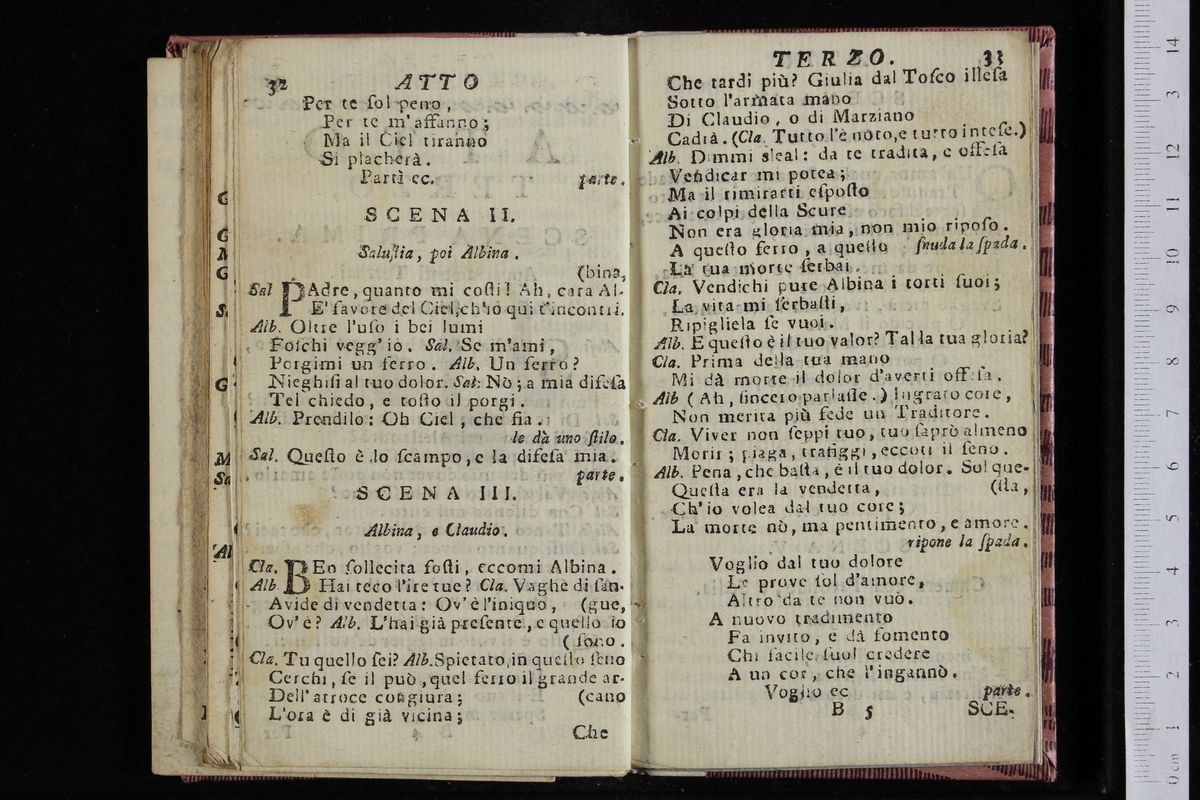 32 ATTO
Per te sol peno,
Per te m'affanno;
Ma il Ciel tiranno
Si placherà.
Partì ec. parte.
SCENA II.
Salustia, poi Albina.
(bina,
Sal PAdre, quanto mi costi! Ah, cara Al-
E' favore del Ciel, ch'io quì t'incontri.
Alb. Oltre l'uso i bei lumi
Foschi vegg' io. Sal. Se m'ami,
Porgimi un ferro. Alb. Un ferro?
Nieghisi al tuo dolor. Sal. Nò; a mia difesa
Tel chiedo, e tosto il porgi.
Alb. Prendilo: Oh Ciel, che fia.
le dà uno stilo.
Sal. Questo è lo scampo, e la difesa mia.
parte.
SCENA III.
Albina, e Claudio.
Cla. BEn sollecita fosti, eccomi Albina.
Alb Hai teco l'ire tue? Cla. Vaghe di san-
Avide di vendetta: Ov' è l'iniquo, (gue,
Ov' è? Alb. L'hai già presente, e quello io
( sono.
Cla. Tu quello sei? Alb. Spietato, in questo seno
Cerchi, se il può, quel ferro il grande ar-
Dell' atroce congiura; (cano
L'ora è di già vicina;
Che
TERZO. 33
Che tardi più? Giulia dal Tosco illesa
Sotto l'armata mano
Di Claudio, o di Marziano
Cadrà. (Cla. Tutto l'è noto, e tutto intese.)
Alb. Dimmi sleal: da te tradita, e offesa
Vendicar mi potea;
Ma il rimirarti esposto
Ai colpi della Scure
Non era gloria mia, non mio riposo.
A questo ferro, a questo snuda la spada.
La tua morte serbai.
Cla. Vendichi pure Albina i torti suoi;
La vita mi serbasti,
Ripigliela se vuoi.
Alb. E questo è il tuo valor? Tal la tua gloria?
Cla. Prima della tua mano
Mi dà morte il dolor d'averti offesa.
Alb ( Ah, sincero parlasse.) Ingrato core,
Non merita più fede un Traditore.
Cla. Viver non seppi tuo, tuo saprò almeno
Morir; piaga, trafiggi, eccoti il seno.
Alb. Pena, che basta, è il tuo dolor. Sol que-
Questa era la vendetta, (sta,
Ch' io volea dal tuo core;
La morte nò, ma pentimento, e amore.
ripone la spada.
Voglio dal tuo dolore
Le prove sol d'amore,
Altro da te non vuò.
A nuovo tradimento
Fa invito, e dà fomento
Chi facile suol credere
A un cor, che l'ingannò.
Voglio ec parte.
B 5 SCE-